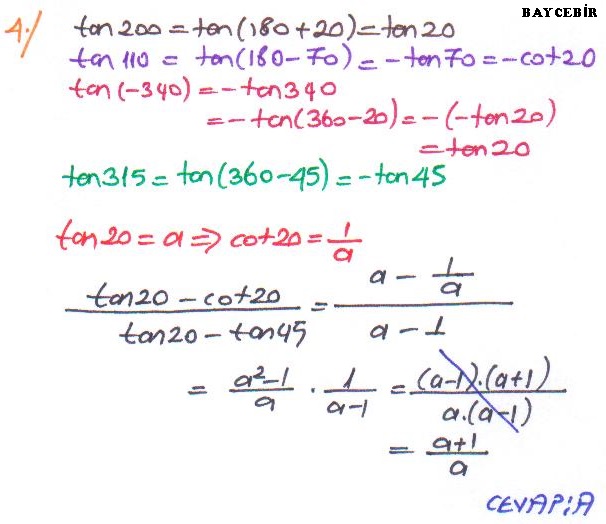 BAYCEBİR
4·/ tan200 = tan(180+20) = tan20
tan110 = tan(180-70) = -tan70 = -cot20
tan(-340) = -tan340
= -tan(360-20) = -(-tan20)
= tan20
tan315 = tan(360-45) = -tan45
tan20 = a ⇒ cot20 = 1/a
(tan20 - cot20)/(tan20 - tan45) = (a - 1/a)/(a - 1)
= (a²-1)/a · 1/(a-1) = ((a-1)·(a+1))/(a·(a-1))
= (a+1)/a
CEVAP:A